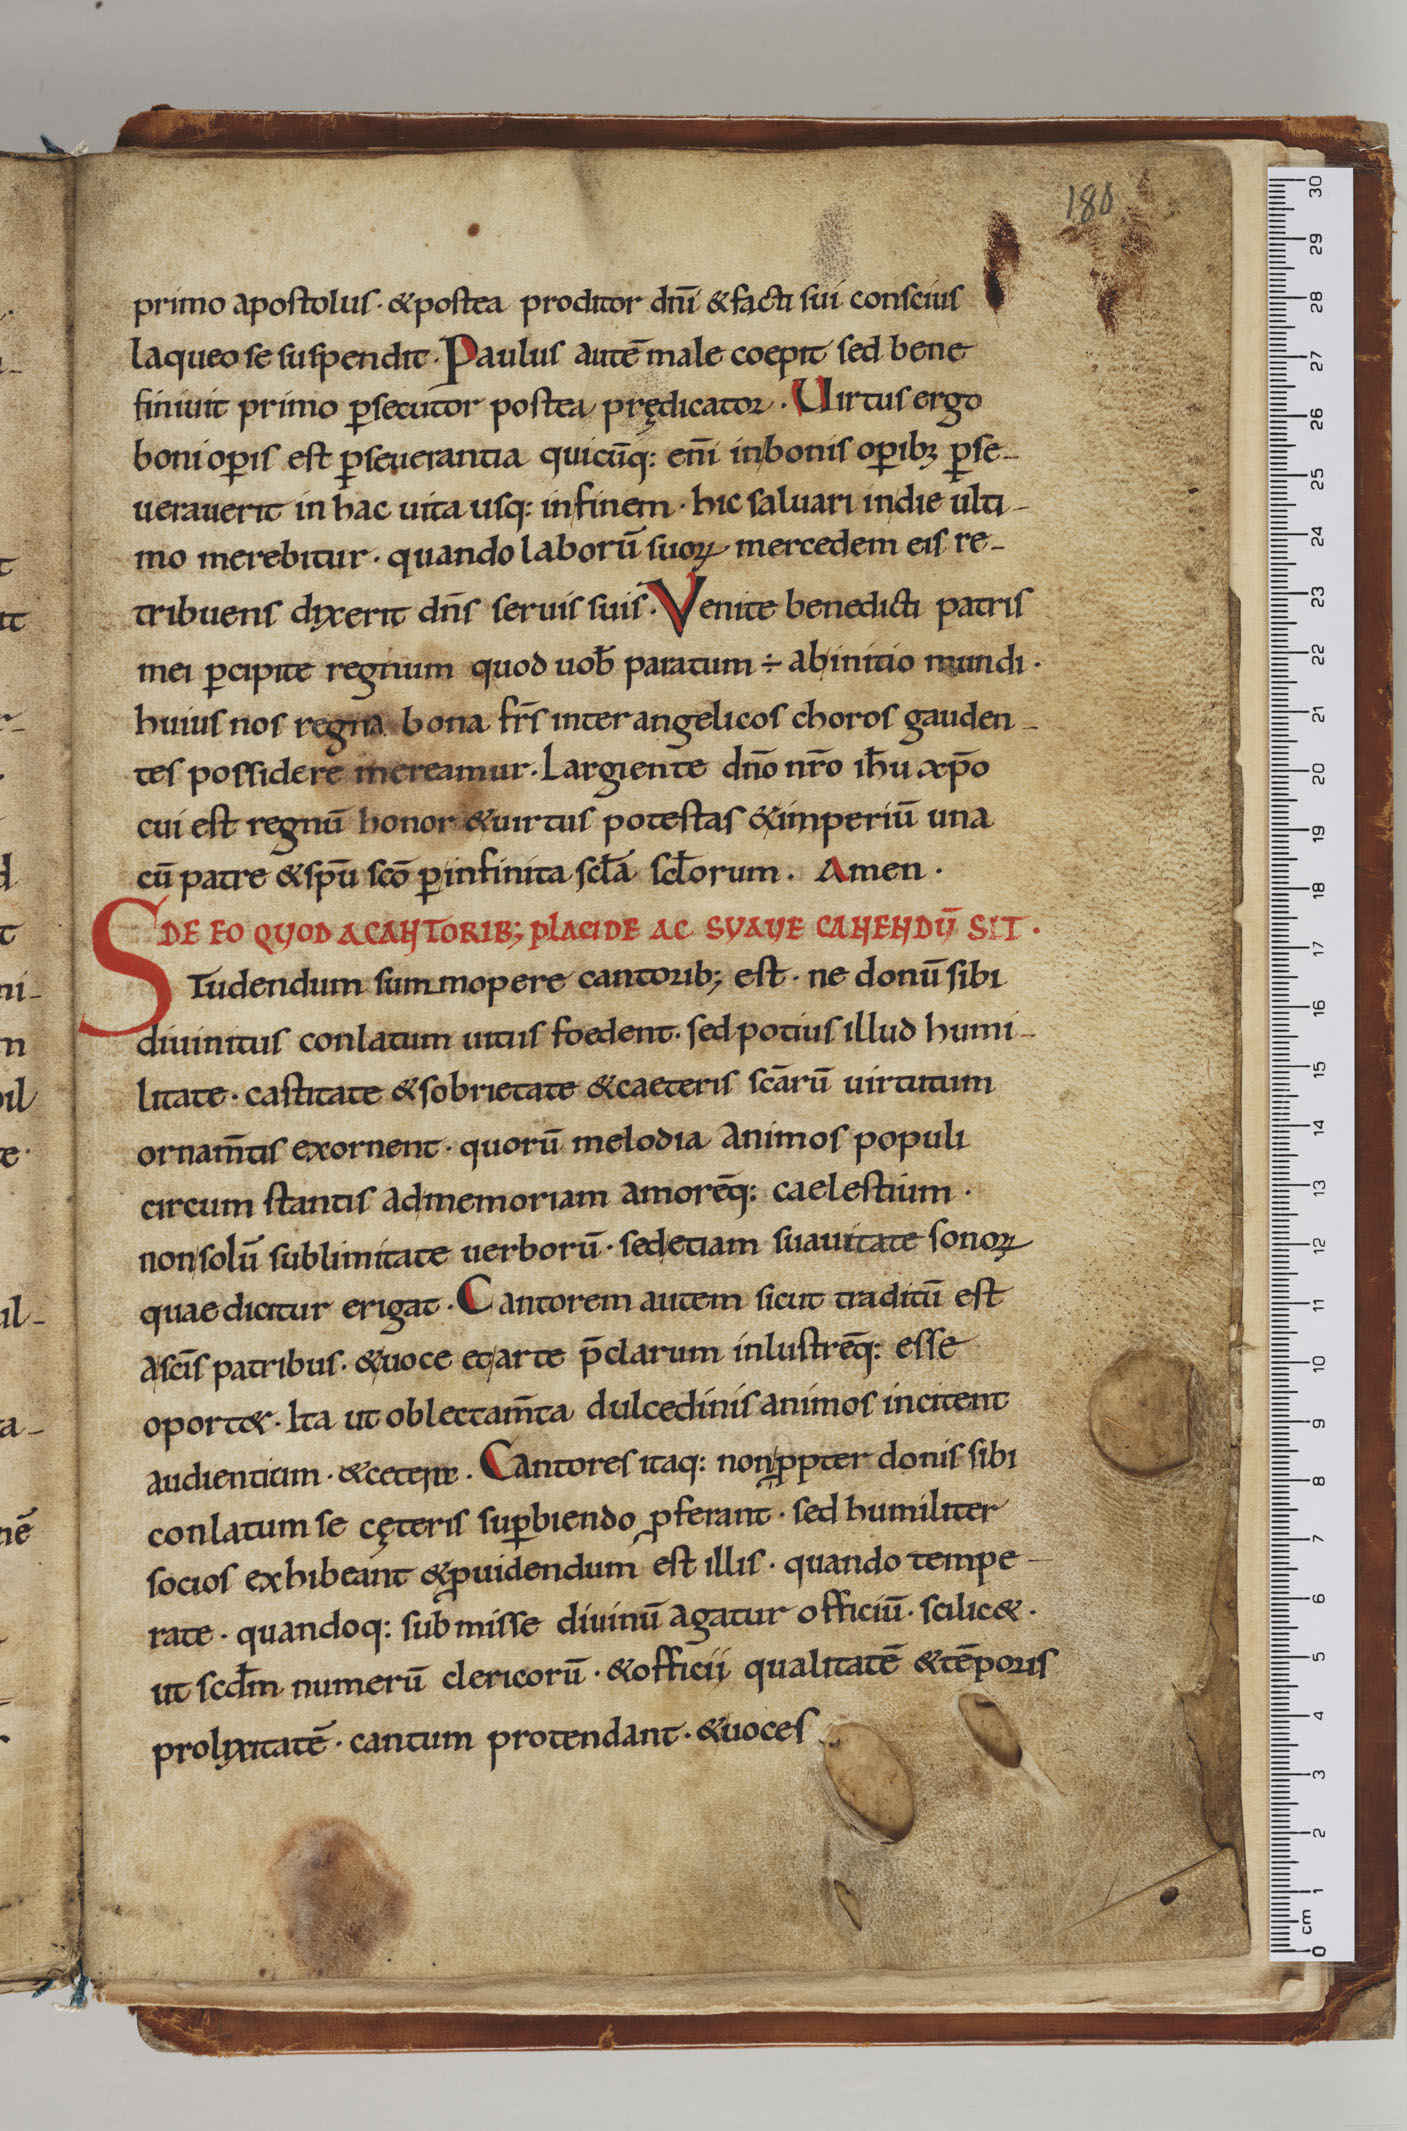 180
primo apostolus· &postea proditor dnī &facti sui conscius
laqueo se suspendit· Paulus autē male coepit sed bene
finiuit primo ꝑsecutor postea prędicator· Uirtus ergo
boni oꝑis est ꝑseuerantia quicūq: enī inbonis oꝑibꝫ ꝑse-
uerauerit in hac uita usq: infinem· hic saluari indie ulti-
mo merebitur· quando laborū suoꝝ mercedem eis re-
tribuens dixerit dn̄s seruis suis· Venite benedicti patris
mei ꝑcipite regnum quod uob̄ paratum ÷ abinitio mundi·
huius nos regna bona fr̄s inter angelicos choros gauden-
tes possidere mereamur. Largiente dn̄o nr̄o ih̄u xp̄o
cui est regnū honor &uirtus potestas &imperiū una
cū patre &sp̄u scō ꝑinfinita scl̄a scl̄orum. Amen·
DE EO QUOD A CANTORIB; PLACIDE AC SUAUE CANENDŪ SIT·
STudendum summopere cantorib; est· ne donū sibi
diuinitus conlatum uitiis foedent· sed potius illud humi-
litate· castitate &sobrietate &caeteris scārū uirtutum
ornam̄tis exornent· quorū melodia animos populi
circum stantis admemoriam amorēq: caelestium·
nonsolū sublimitate uerborū· sedetiam suauitate sonoꝝ
quae dicitur erigat· Cantorem autem sicut traditū est
ascīs patribus· &uoce etarte p̄clarum inlustrēq: esse
oport&· Ita ut oblectam̄ta dulcedinis animos incitent
audientium· &cetere· Cantores itaq: non ꝓpter donis sibi
conlatum se cęteris suꝑbiendo ꝓferant· sed humiliter
socios exhibeant &ꝓuidendum est illis· quando tempe-
rate· quandoq: submisse diuinū agatur officiū· scilic&·
ut scdm̄ numerū clericorū· &officii qualitatē &tēporis
prolixitatē· cantum protendant· &uoces
0 cm 1 2 3 4 5 6 7 8 9 10 11 12 13 14 15 16 17 18 19 20 21 22 23 24 25 26 27 28 29 30